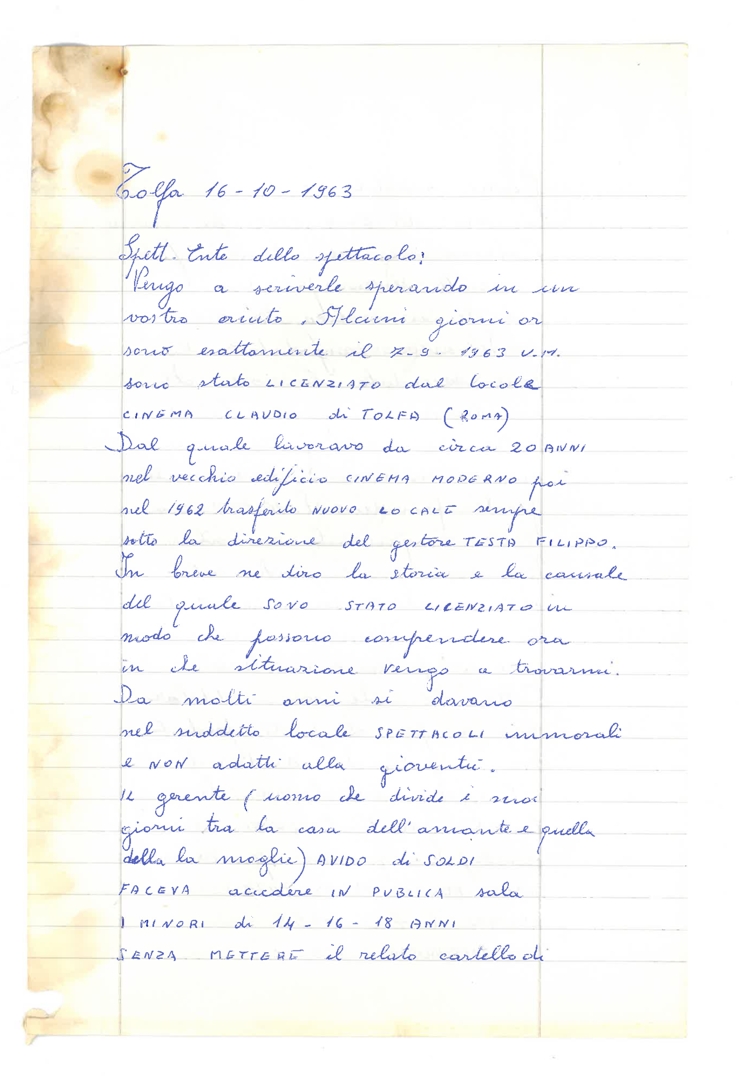 Tolfa 16-10-1963
Spett. Ente dello spettacolo!
Vengo a scriverle sperando in un
vostro aiuto. Alcuni giorni or
sono esattamente il 7-9-1963 U.M.
sono stato LICENZIATO dal locale
CINEMA CLAUDIO di TOLFA (ROMA)
Dal quale lavoravo da circa 20 ANNI
nel vecchio edificio CINEMA MODERNO poi
nel 1962 trasferito NUOVO LOCALE sempre
sotto la direzione del gestore TESTA FILIPPO.
In breve ne diro la storia e la causale
del quale SOVO STATO LICENZIATO in
modo che possono comprendere ora
in che situazione vengo a trovarmi.
Da molti anni si davano
nel suddetto locale SPETTACOLI immorali
e NON adatti alla gioventù.
IL gerente (uomo che divide i suoi
giorni tra la casa dell'amante e quella
della la moglie) AVIDO di SOLDI
FACEVA accedere IN PUBLICA sala
I MINORI di 14-16-18 ANNI
SENZA METTERE il relato cartello di